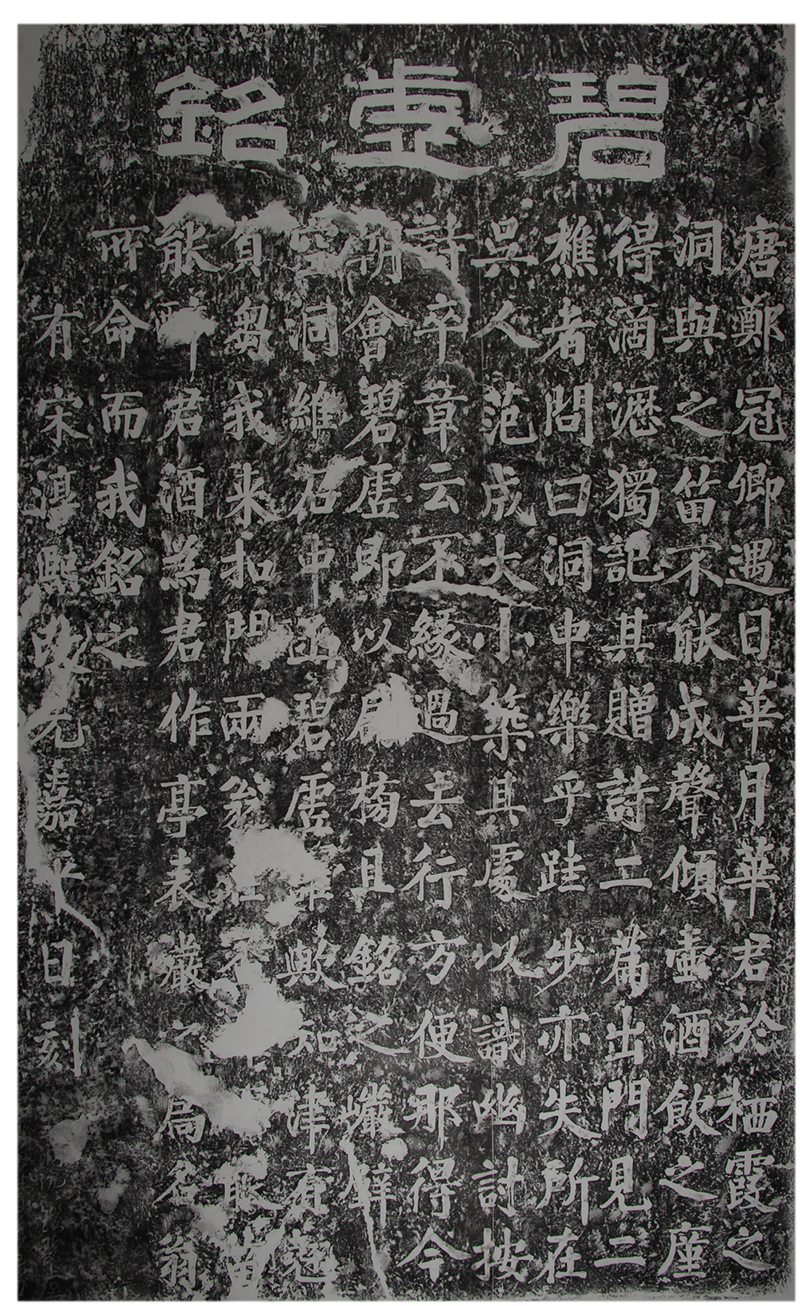 碧虛銘
唐鄭冠卿遇日華月華君於栖霞之
洞與之笛不能成聲傾壺酒飲之廑
得滴瀝獨記其贈詩二篇出門見二
樵者問曰洞中樂乎跬步亦失所在
吳人范成大小築其處以識幽討按
詩卒章云不緣過去行方便那得今
朝會碧虛即以扁楣且銘之巉
空洞維石中函碧虛歟知津有愆
負芻我来扣門兩翁
能醉君酒為君作亭表巖局名翁
所命而我銘之
有宋淳熙改元嘉平日刻